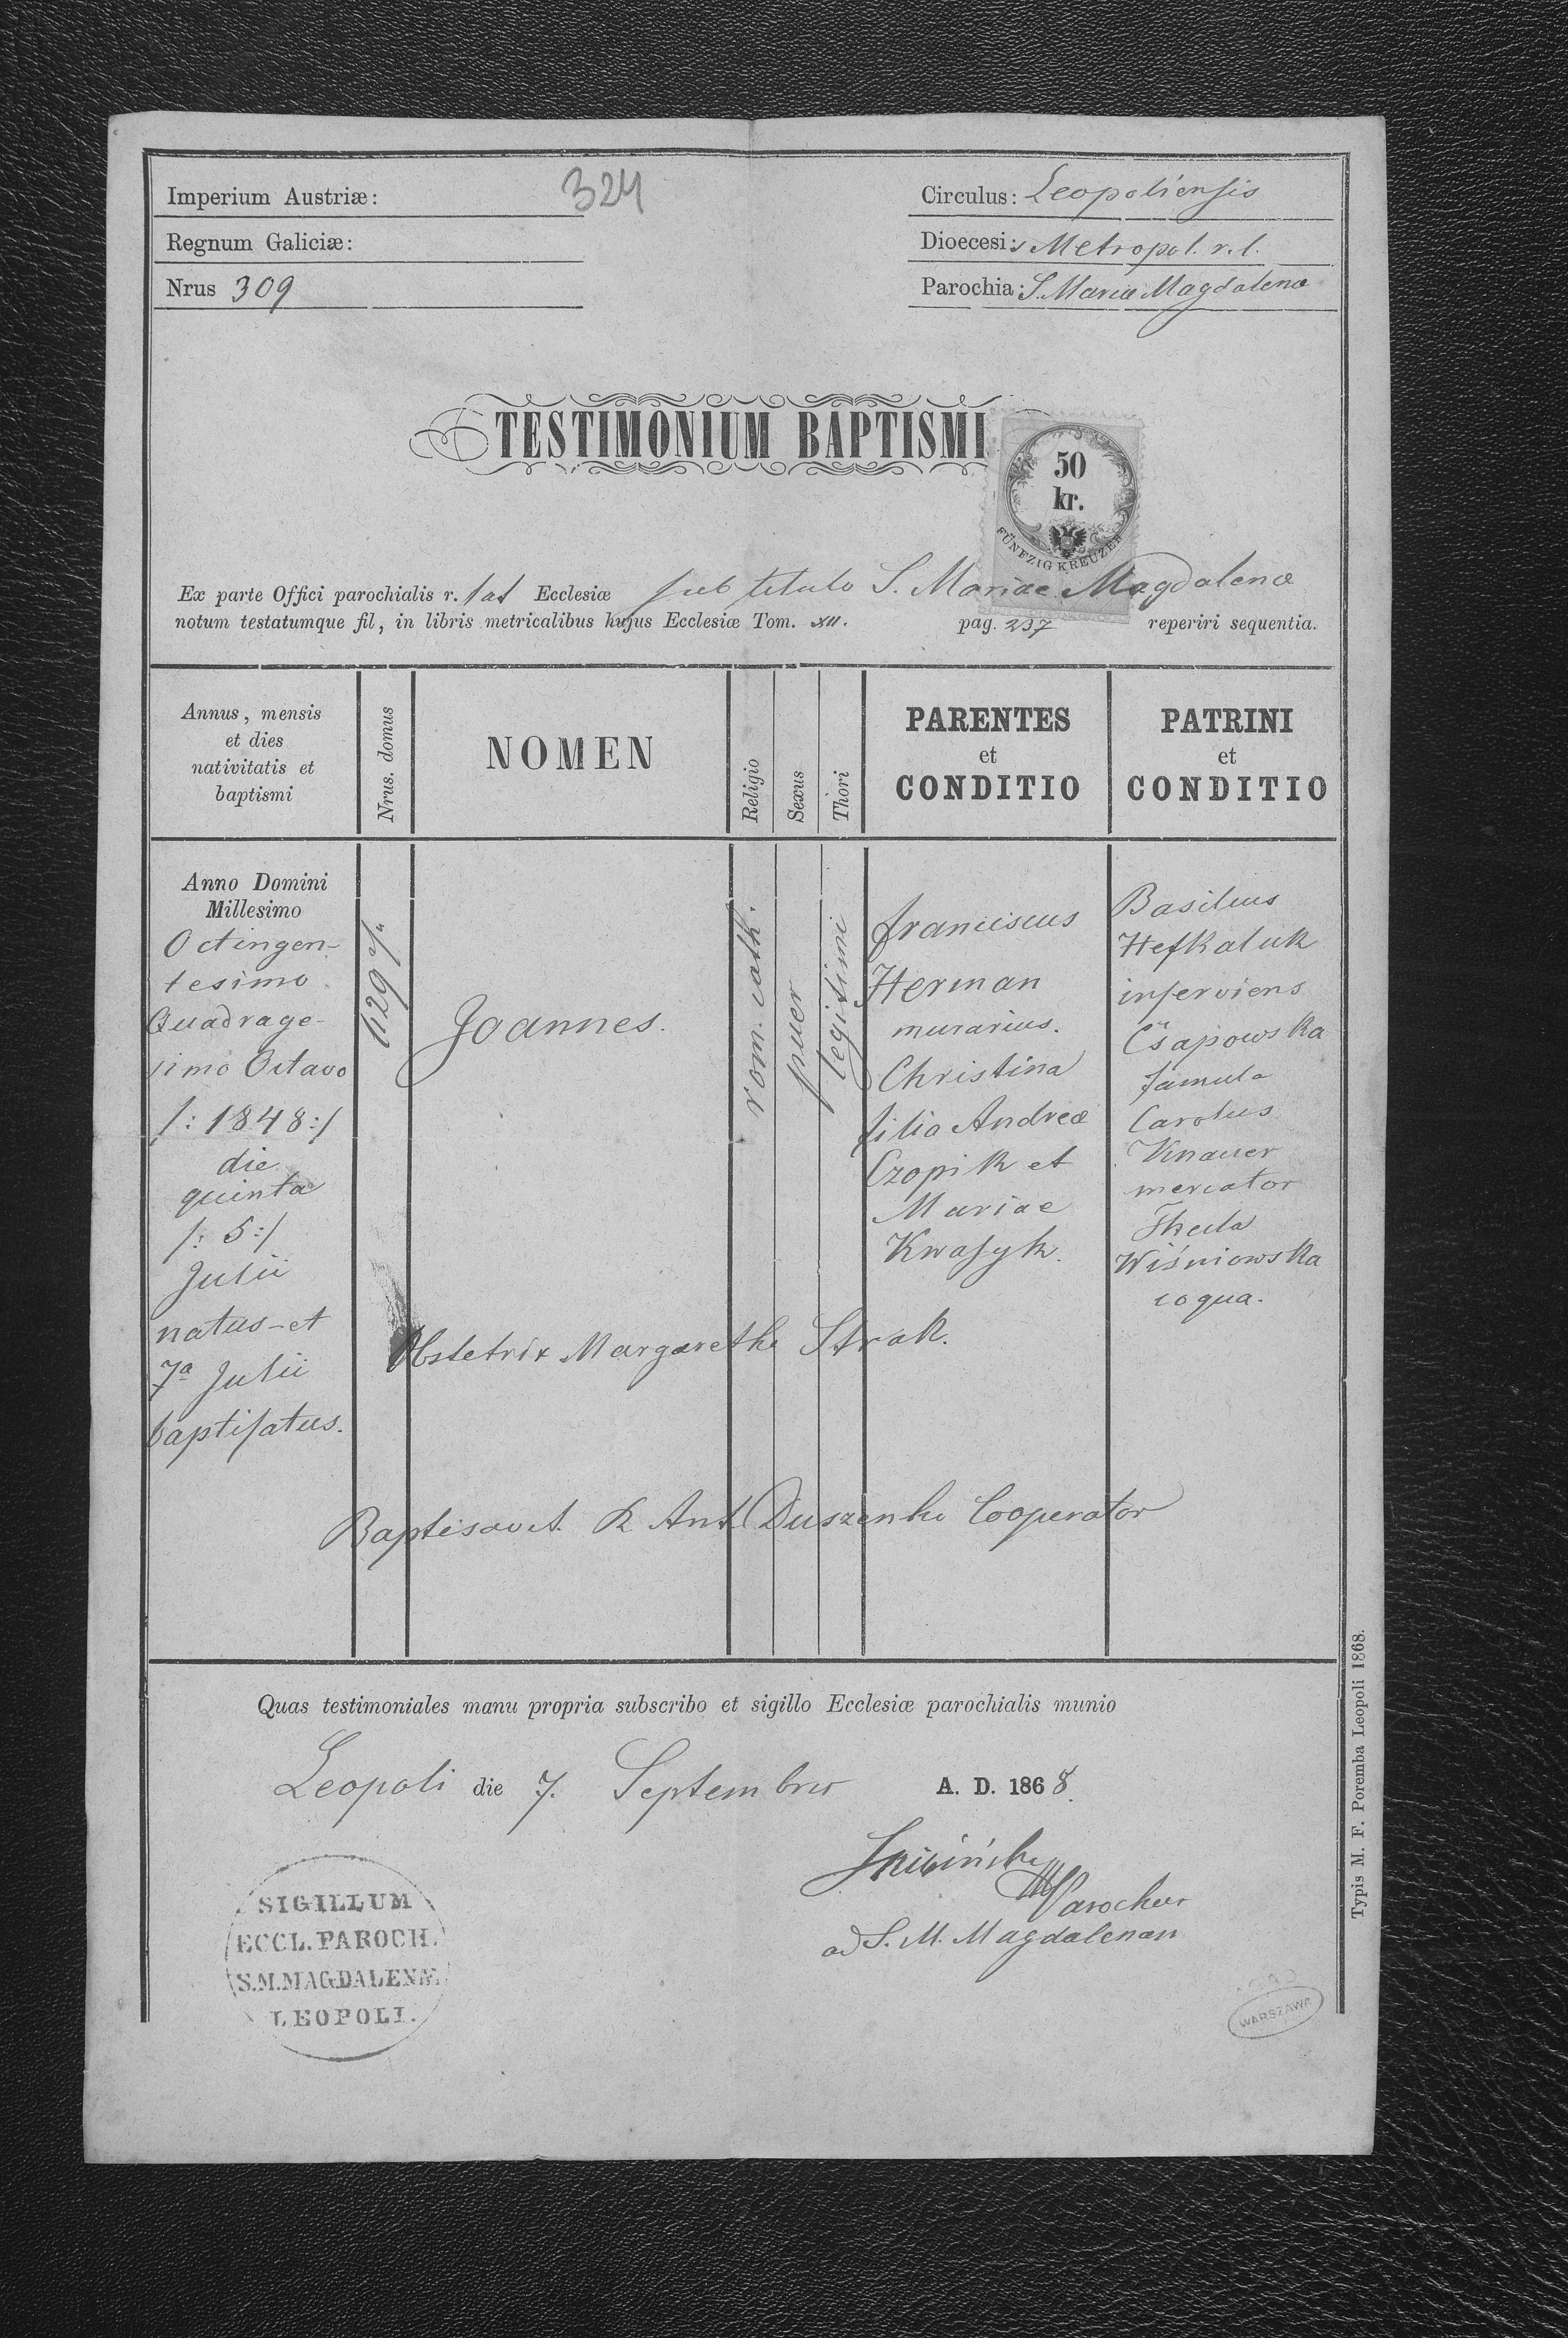 324
Imperium Austriæ:
Regnum Galiciæ:
Nrus 309
Circulus: Leopoliensis
Dioecesis Metropol. r. l.
Parochia: S. Mariæ Magdalenæ
TESTIMONIUM BAPTISMI
50
kr.
FÜNFZIG KREUZER
Ex parte Offici parochialis r. lat Ecclesiæ sub titulo S. Mariae Magdalenæ
notum testatumque fil, in libris metricalibus hujus Ecclesiæ Tom. XII. pag. 237 reperiri sequentia.
Annus, mensis
et dies
nativitatis et
baptismi
Nrus. domus
NOMEN
Religio
Sexus
Thori
PARENTES
et
CONDITIO
PATRINI
et
CONDITIO
Anno Domini
Millesimo
Octingen-
tesimo
Quadrage-
simo Octavo
/: 1848 :/
die
quinta
/: 5 :/
Julii
natus - et
7a Julii
baptisatus.
Joannes.
rom. cath.
puer
legitimi
Franciscus
Herman
murarius.
Christina
filia Andreæ
Czopik et
Mariae
Kwasyk.
Basilius
Hefkaluk
inserviens
Csapowska
famula
Carolus
Knauer
mercator
Thecla
Wiśniowska
coqua.
Obstetrix Margaretha Strak.
Baptisavit R Ant Duszenko Cooperator
Quas testimoniales manu propria subscribo et sigillo Ecclesiæ parochialis munio
Leopoli die 7. Septembris A. D. 1868.
Parochus
ad S. M. Magdalenam
SIGILLUM
ECCL. PAROCH.
S.M. MAGDALENÆ
LEOPOLI.
WARSZAWA
Typis M. F. Poremba Leopoli 1868.